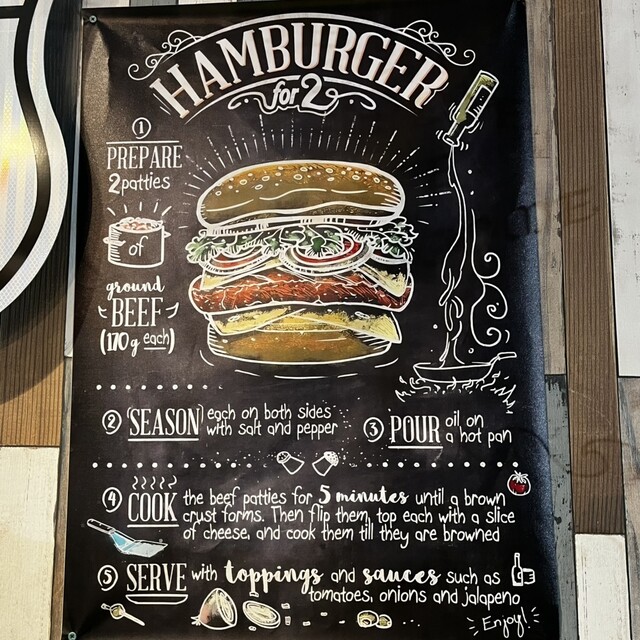 HAMBURGER
for 2
1
PREPARE
2 patties
of
ground
BEEF
(170 g each)
2 SEASON each on both sides
with salt and pepper
3 POUR oil on
a hot pan
4 COOK the beef patties for 5 minutes until a brown
crust forms. Then flip them, top each with a slice
of cheese, and cook them till they are browned
5 SERVE with toppings and sauces such as
tomatoes, onions and jalapeno
Enjoy!